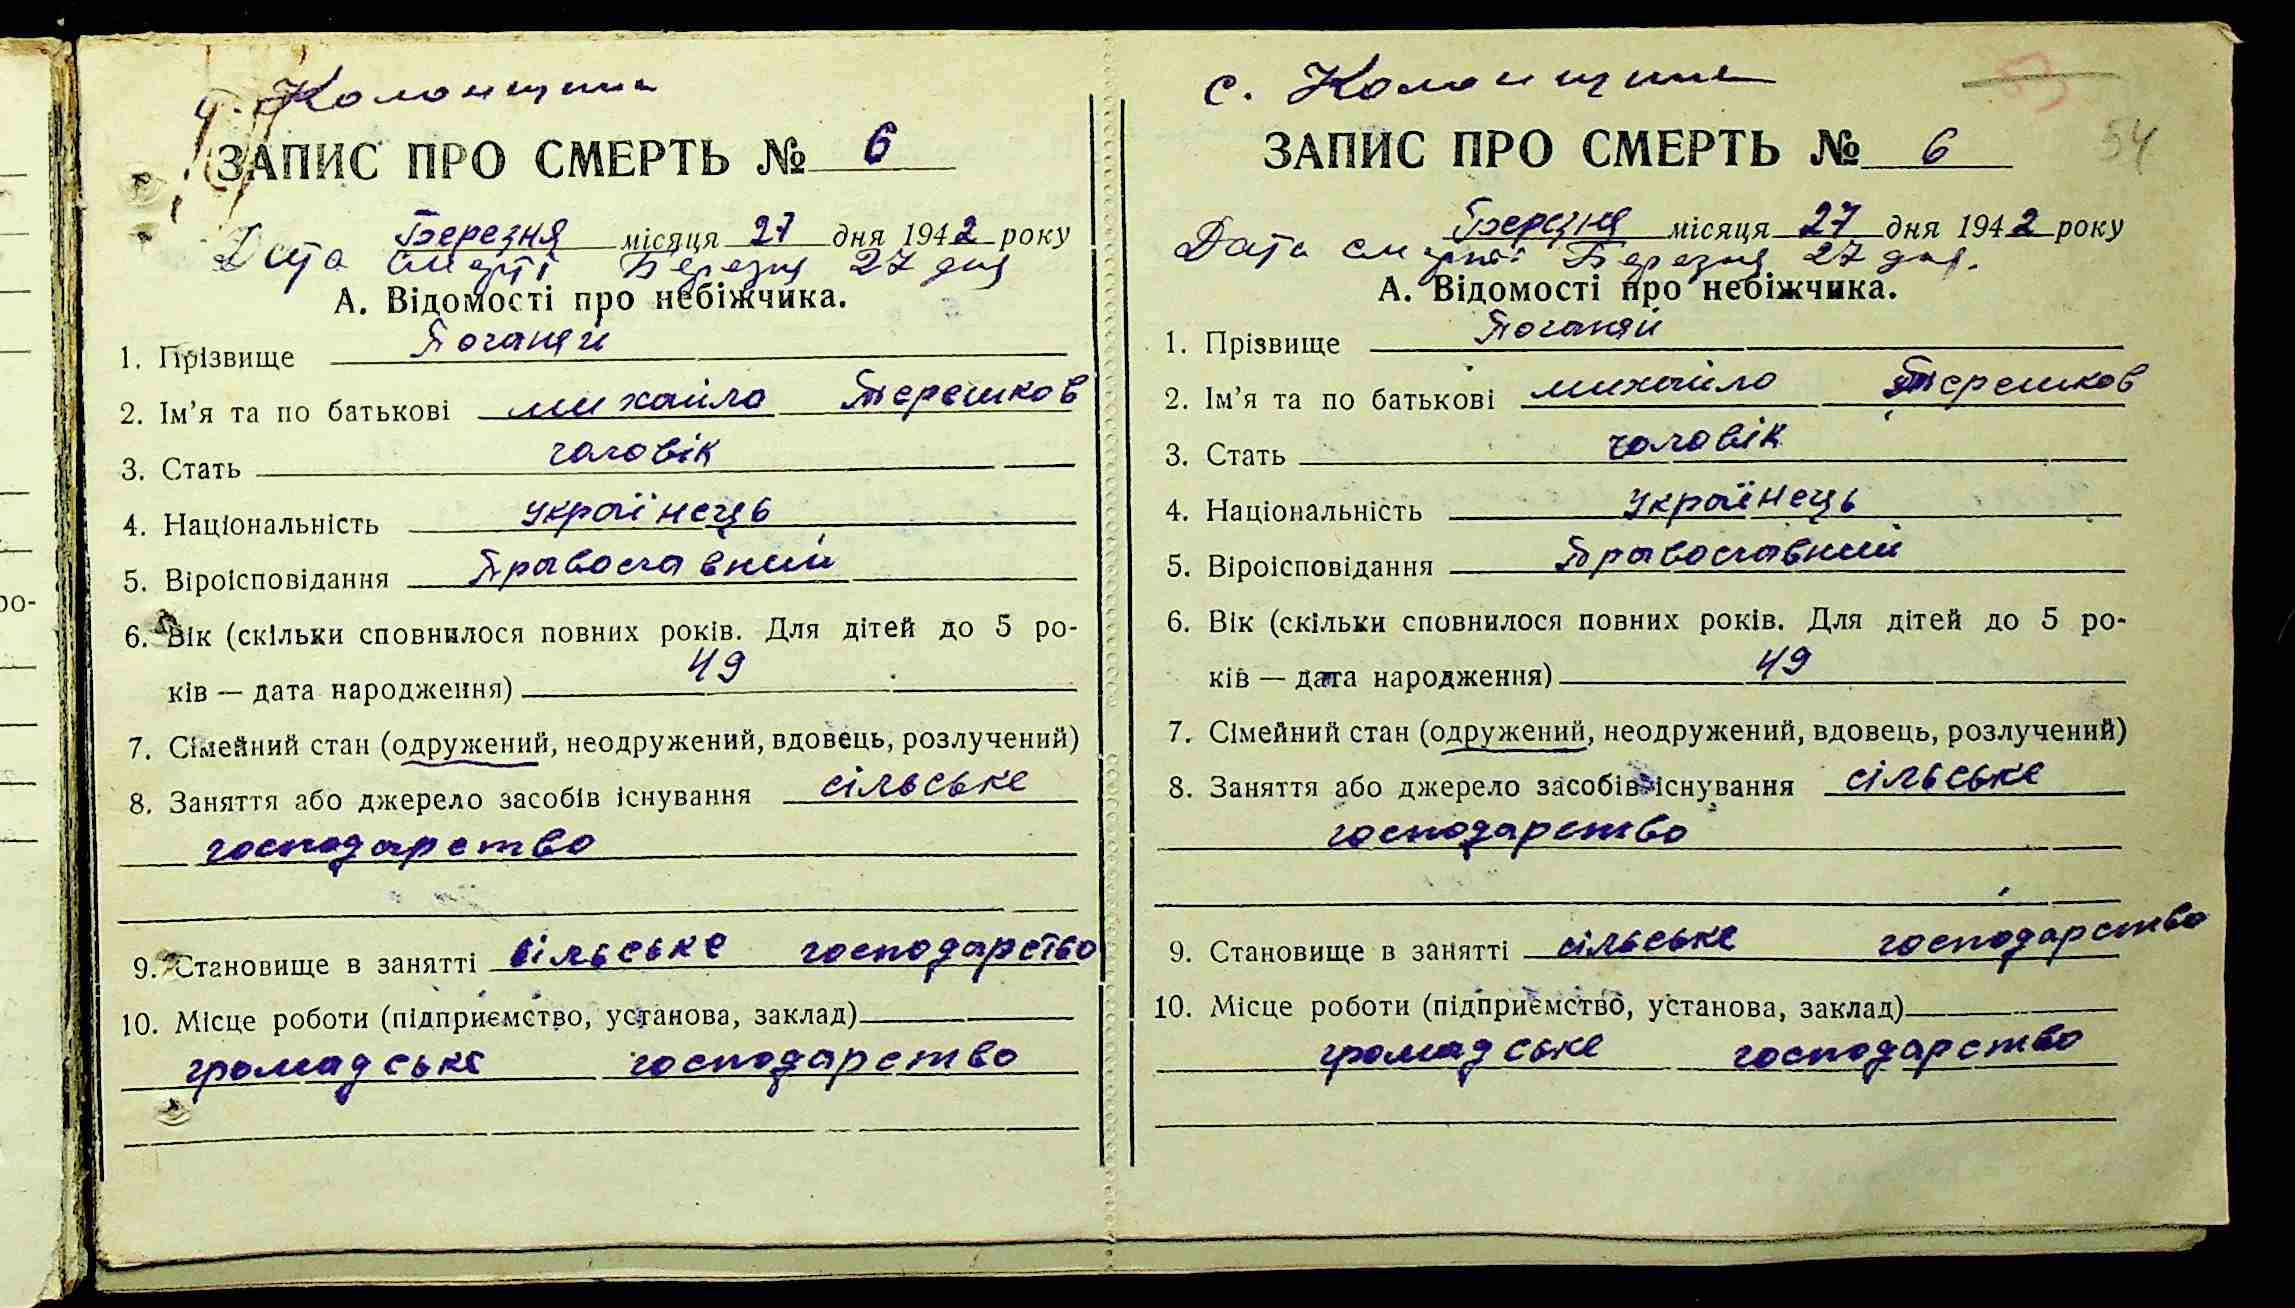 с. Колонщина
ЗАПИС ПРО СМЕРТЬ № 6
Березня місяця 27 дня 1942 року
Дата смерті Березня 27 дня
А. Відомості про небіжчика.
1. Прізвище Поганяй
2. Ім'я та по батькові михайло Терешков
3. Стать чоловік
4. Національність українець
5. Віроісповідання Православний
6. Вік (скільки сповнилося повних років. Для дітей до 5 ро-
ків — дата народження) 49
7. Сімейний стан (одружений, неодружений, вдовець, розлучений)
8. Заняття або джерело засобів існування сільське
господарство
9. Становище в занятті сільське господарство
10. Місце роботи (підприємство, установа, заклад)
громадське господарство
с. Колонщина
54
ЗАПИС ПРО СМЕРТЬ № 6
Березня місяця 27 дня 1942 року
Дата смерті Березня 27 дня.
А. Відомості про небіжчика.
1. Прізвище Поганяй
2. Ім'я та по батькові михайло Терешков
3. Стать чоловік
4. Національність українець
5. Віроісповідання Православний
6. Вік (скільки сповнилося повних років. Для дітей до 5 ро-
ків — дата народження) 49
7. Сімейний стан (одружений, неодружений, вдовець, розлучений)
8. Заняття або джерело засобів існування сільське
господарство
9. Становище в занятті сільське господарство
10. Місце роботи (підприємство, установа, заклад)
громадське господарство
ро-